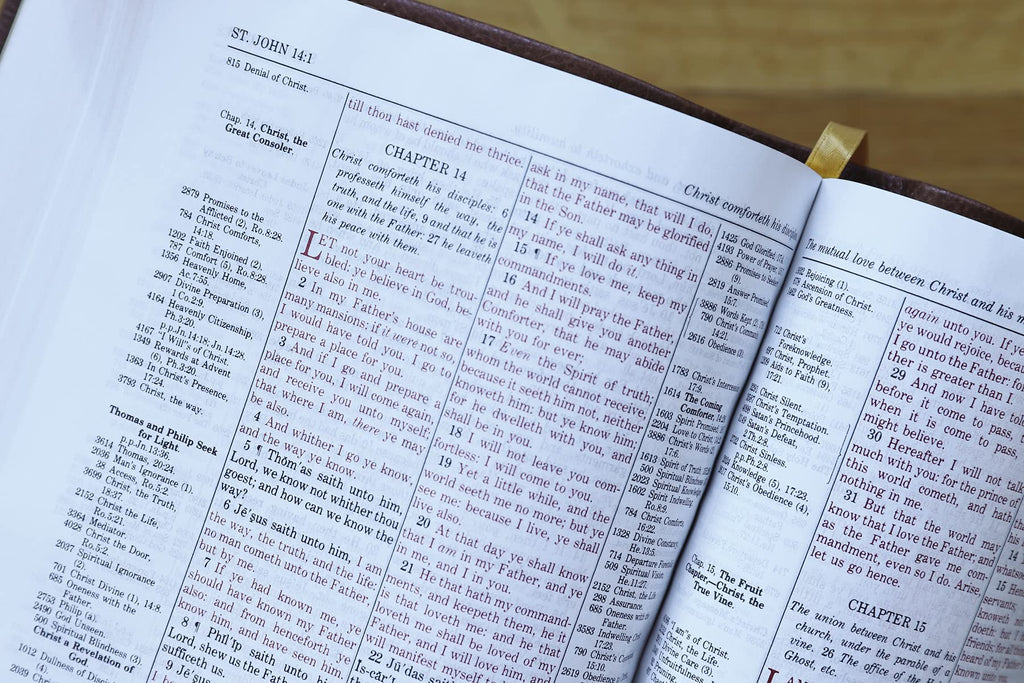 ST. JOHN 14:1
815 Denial of Christ.
Chap. 14, Christ, the
Great Consoler.
2879 Promises to the
Afflicted (2), Ro.8:28.
784 Christ Comforts,
14:18.
1202 Faith Enjoined (2).
787 Comfort (5), Ro.8:28.
1356 Heavenly Home,
Ac.7:55.
2907 Divine Preparation (3),
1 Co.2:9.
4164 Heavenly Citizenship,
Ph.3:20.
4167 "I Will"s of Christ
1349 Rewards at Advent
(6), Ph.3:20.
1363 In Christ's Presence,
17:24.
3793 Christ, the way.
Thomas and Philip Seek
for Light.
3614 Thomas, 20:24.
2036 Man's Ignorance (1).
38 Access, Ro.5:2.
3696 Christ, the Truth,
18:37.
2152 Christ the Life,
Ro.5:21.
3364 Mediator.
4028 Christ the Door,
Ro.5:2.
2037 Spiritual Ignorance
(2).
701 Christ Divine (1), 14:8.
685 Oneness with the
Father.
2753 Philip (a).
2490 God Unseen.
500 Spiritual Blindness (3)
Christ a Revelation of
God.
1012 Dulness of
(4).
till thou hast denied me thrice.
CHAPTER 14
Christ comforteth his disciples: 6
professeth himself the way, the
truth, and the life, 9 and that he is
one with the Father: 27 he leaveth
his peace with them.
LET not your heart be trou-
bled: ye believe in God, be-
lieve also in me.
2 In my Father's house are
many mansions: if it were not so,
I would have told you. I go to
prepare a place for you.
3 And if I go and prepare a
place for you, I will come again,
and receive you unto myself;
that where I am, there ye may
be also.
4 And whither I go ye know,
and the way ye know.
5 ¶ Thŏm´as saith unto him,
Lord, we know not whither thou
goest; and how can we know the
way?
6 Jē´ṣus saith unto him, I am
the way, the truth, and the life:
no man cometh unto the Father,
but by me.
7 If ye had known me, ye
should have known my Father
also: and from henceforth ye
know him, and have seen him.
8 ¶ Phĭl´ĭp saith unto him,
Lord, shew us the Father, and it
sufficeth us.
9 Jē´ṣus saith unto
ask in my name, that will I do,
that the Father may be glorified
in the Son.
14 If ye shall ask any thing in
my name, I will do it.
15 ¶ If ye love me, keep my
commandments.
16 And I will pray the Father,
and he shall give you another
Comforter, that he may abide
with you for ever;
17 Even the Spirit of truth;
whom the world cannot receive,
because it seeth him not, neither
knoweth him: but ye know him;
for he dwelleth with you, and
shall be in you.
18 I will not leave you com-
fortless: I will come to you.
19 Yet a little while, and the
world seeth me no more; but ye
see me: because I live, ye shall
live also.
20 At that day ye shall know
that I am in my Father, and ye
in me, and I in you.
21 He that hath my command-
ments, and keepeth them, he it
is that loveth me: and he that
loveth me shall be loved of my
Father, and I will love him, and
will manifest myself to
22 Jū´das
Christ comforteth his
1425 God Glorified
4193 Power of Prayer
2886 Promises to
(9).
2819 Answer Promised
15:7.
3886 Words Kept
790 Christ's
14:21.
2616 Obedience
1783 Christ's
17:9.
1614 The Coming
Comforter
1603 Spirit Promised
2204 Love to Christ
3886 Christ's Words
17:6.
1613 Spirit of Truth
500 Spiritual Blindness
2023 Spiritual
1602 Spirit Indwelling
Ro.8:9.
784 Christ Comforts
16:22.
1328 Divine Constancy
He.13:5.
714 Departure
509 Spiritual Vision
He.11:27.
2152 Christ, the Life
298 Assurance.
685 Oneness with
Father.
3583 Indwelling
17:23.
790 Christ's
15:10.
2615 Obedience
The mutual love between Christ and his
Rejoicing (1).
Ascension of Christ.
God's Greatness.
712 Christ's
Foreknowledge.
Christ, Prophet.
Aids to Faith (9),
17:21.
Christ Silent.
Christ's Temptation.
Satan's Princehood.
Satan's Defeat,
2 Th.2:8.
Christ Sinless.
Knowledge (5), 17:23.
Christ's Obedience (4),
15:10.
Chap. 15, The Fruit
Chapter—Christ, the
True Vine.
"I am"s of Christ.
Christ, the Life.
Divine Care (3).
Unfruitfulness.
again unto you. If ye
ye would rejoice, because
I go unto the Father: for
ther is greater than I.
29 And now I have told
before it come to pass,
when it is come to pass,
might believe.
30 Hereafter I will not talk
much with you: for the prince of
this world cometh, and hath
nothing in me.
31 But that the world may
know that I love the Father; and
as the Father gave me com-
mandment, even so I do. Arise,
let us go hence.
CHAPTER 15
The union between Christ and his
church, under the parable of a
vine. 26 The office of the
Ghost, etc.
14
whatsoever
15
servants;
knoweth
doeth: but I
friends;
heard of my
known unto